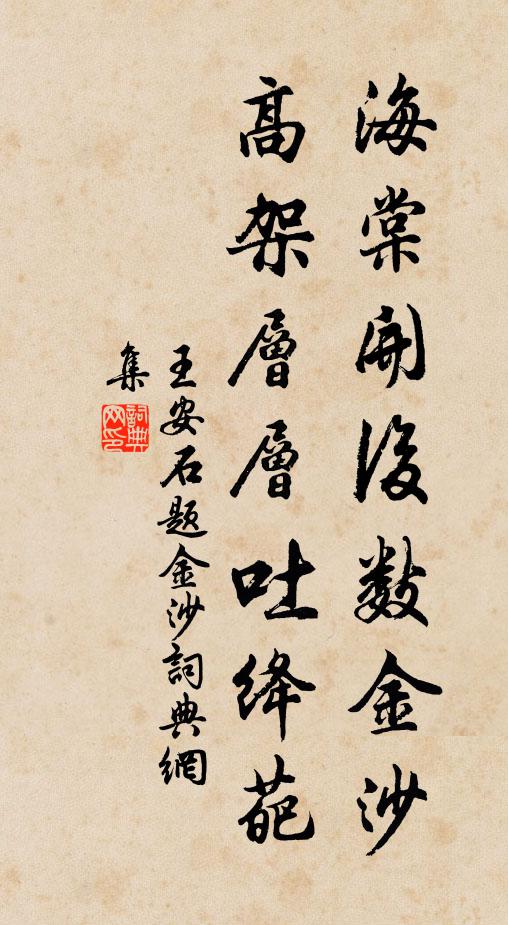 海棠開後数金沙
高架層層吐絳葩
王安石题金沙詞典網
集
詞典网印